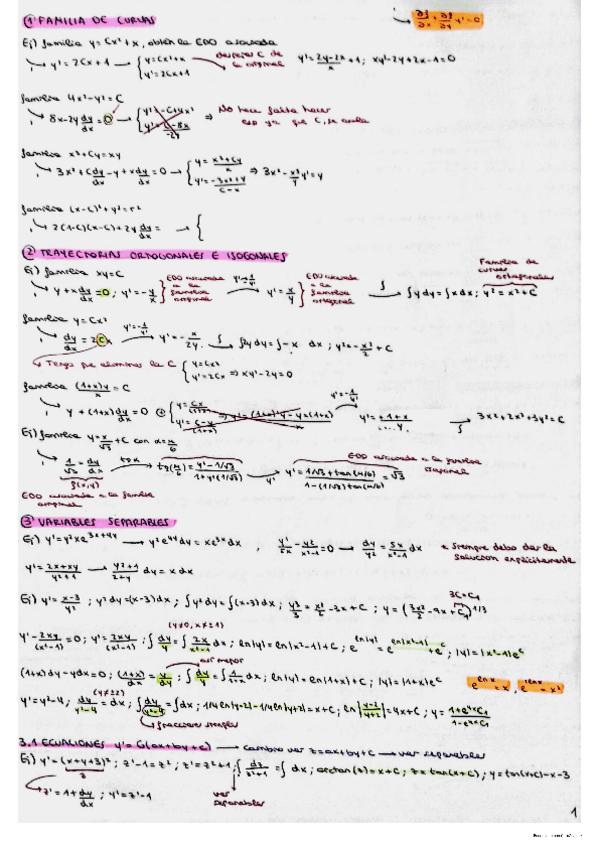 ① FAMILIA DE CURVAS
∂f/∂x + ∂f/∂y y' = 0
Ej) familia y=Cx²+x, obtén la EDO asociada
y' = 2Cx+1 → { y=Cx²+x y'=2Cx+1 despejas C de la original y' = 2y-2x/x +1; xy'-2y+2x-1=0
familia 4x²-y²=C
8x-2y dy/dx = 0 → ⇒ No hace falta hacer eso ya que C, se anula
familia x³+Cy=xy
3x²+C dy/dx - y + x dy/dx = 0 → { y = x³+Cy/x y' = -3x²+y/C-x ⇒ 3x²- x³/y y' = y
familia (x-C)²+y²=r²
+2y dy/dx = → {
② TRAYECTORIAS ORTOGONALES E ISOGONALES
Ej) familia xy=C
Familia de curvas ortogonales
y+x dy/dx = 0; y' = -y/x } EDO asociada a la familia original → y' = x/y } EDO asociada a la familia ortogonal ∫ → ∫y dy = ∫x dx; y² = x²+C
familia y=Cx²
dy/dx = 2Cx → y' = -x/2y ∫ → ∫2y dy = ∫-x dx; y² = -x²/2 + C
→ Tengo que eliminar la C { y=Cx² y'=2Cx ⇒ xy'-2y=0
familia (1+x)y/x = C
y + (1+x) dy/dx = 0
3x²+2x³+3y²=C
Ej) familia y = x/√3 + C con α=π/6
1/√3 = dy/dx → tg α → tg(π/6) = y'-1/√3 / 1+y'(1/√3) → y' = 1/√3+tan(π/6) / 1-(1/√3)tan(π/6) = √3
f(x,y)
EDO asociada a la familia isogonal
EDO asociada a la familia original
③ VARIABLES SEPARABLES
Ej) y'=y²xe^(3x+4y) → dx , y'/5x - y²/x²-1 = 0 → dy/y² = 5x/x²-1 dx * Siempre debo dar la solución explícitamente
y' = 2x+xy/y²+1 → y²+1/2+y dy = x dx
3C=C₁
Ej) y' = x-3/y²; y²dy=(x-3)dx; ∫y²dy=∫(x-3)dx; y³/3 = x²/2 -3x+C; y = (3x²/2 -9x+C₁)^1/3
(y≠0, x≠±1)
y'- 2xy/(x²-1) = 0; y' = 2xy/(x²-1); ∫dy/y = ∫2x/x²-1 dx; ln|y| = ln|x²-1|+C; e^ln|y| = e^ln|x²-1| + e^C; |y| = |x²-1|e^C
así mejor
(1+x)dy-ydx=0; (1+x)/dx = y/dy; ∫dy/y = ∫1/1+x dx; ln|y| = ln|1+x|+C; |y| = |1+x|e^C
e^ln x = x,
(y≠±2)
y'=y²-4; dy/y²-4 = dx; ∫dy/y²-4 = ∫dx; 1/4 ln|y-2|-1/4 ln|y+2| = x+C; ln|y-2/y+2| = 4x+C; y = 1+e^4x C₁ / 1-e^4x C₁
→ fracciones simples
3.1 ECUACIONES y' = G(ax+by+c) → cambio var z=ax+by+c → var separables
Ej) y'=(x+y+3)²; z'-1=z²; z'=z²+1; ∫dz/z²+1 = ∫dx; arctan(z)=x+C; z=tan(x+C); y=tan(x+C)-x-3
z
z' = 1+ dy/dx; y'=z'-1
var separables
1